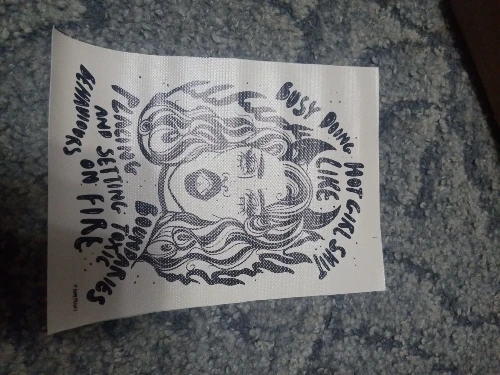 BUSY DOING HOT GIRL SHIT
LIKE
PLACING BOUNDARIES
AND SETTING TOXIC
BEHAVIOURS ON FIRE